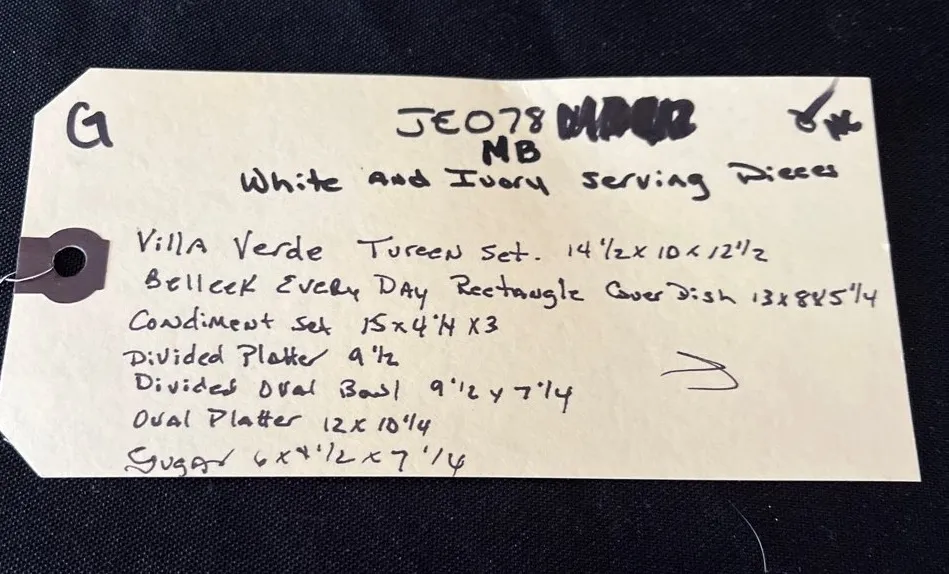 G
JE078
MB
White and Ivory Serving Pieces
Villa Verde Tureen Set. 14 1/2 x 10 x 12 1/2
Belleek Every Day Rectangle Cover Dish 13x8x5 1/4
Condiment Set 15x4 1/4 x3
Divided Platter 9 1/2
Divided Oval Bowl 9 1/2 x 7 1/4
Oval Platter 12x 10 1/4
Sugar 6x4 1/2 x 7 1/4